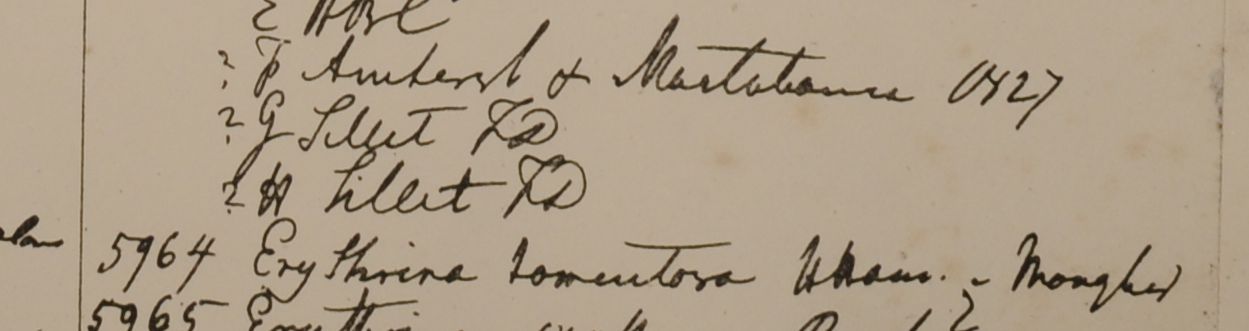 ? HBC
? F Amherst & Martabania 1827
? G Sillet FD
? H Sillet FD
5964 Erythrina tomentosa HHam. - Monghir
5965